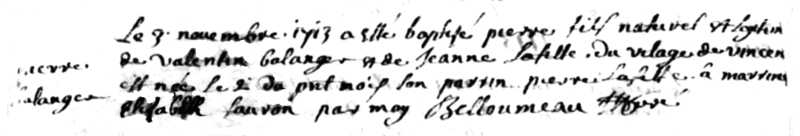 Le 3. novembre. 1713 a esté baptisé pierre fils naturel et legitim
de valentin balanger et de Jeanne lafille. du vilage de vincen
est née le 2 du pnt mois son parrin pierre lafille. a marrine
pierre
balanger
elisabeth lauron par moy Belloumeau curé